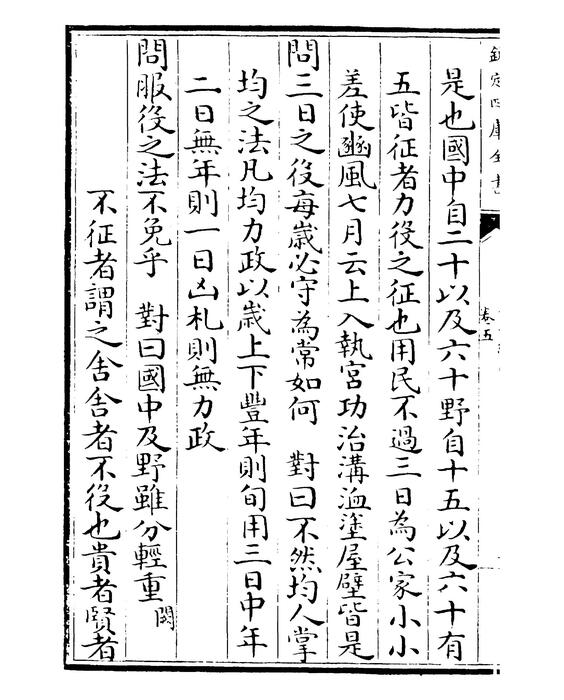 欽定四庫全書
卷五
是也國中自二十以及六十野自十五以及六十有
五皆征者力役之征也用民不過三日為公家小小
差使豳風七月云上入執宮功治溝洫塗屋壁皆是
問三日之役每嵗必守為常如何　對曰不然均人掌
均之法凡均力政以嵗上下豐年則旬用三日中年
二日無年則一日凶札則無力政
問服役之法不免乎　對曰國中及野雖分輕重闕
不征者謂之舍舍者不役也貴者賢者